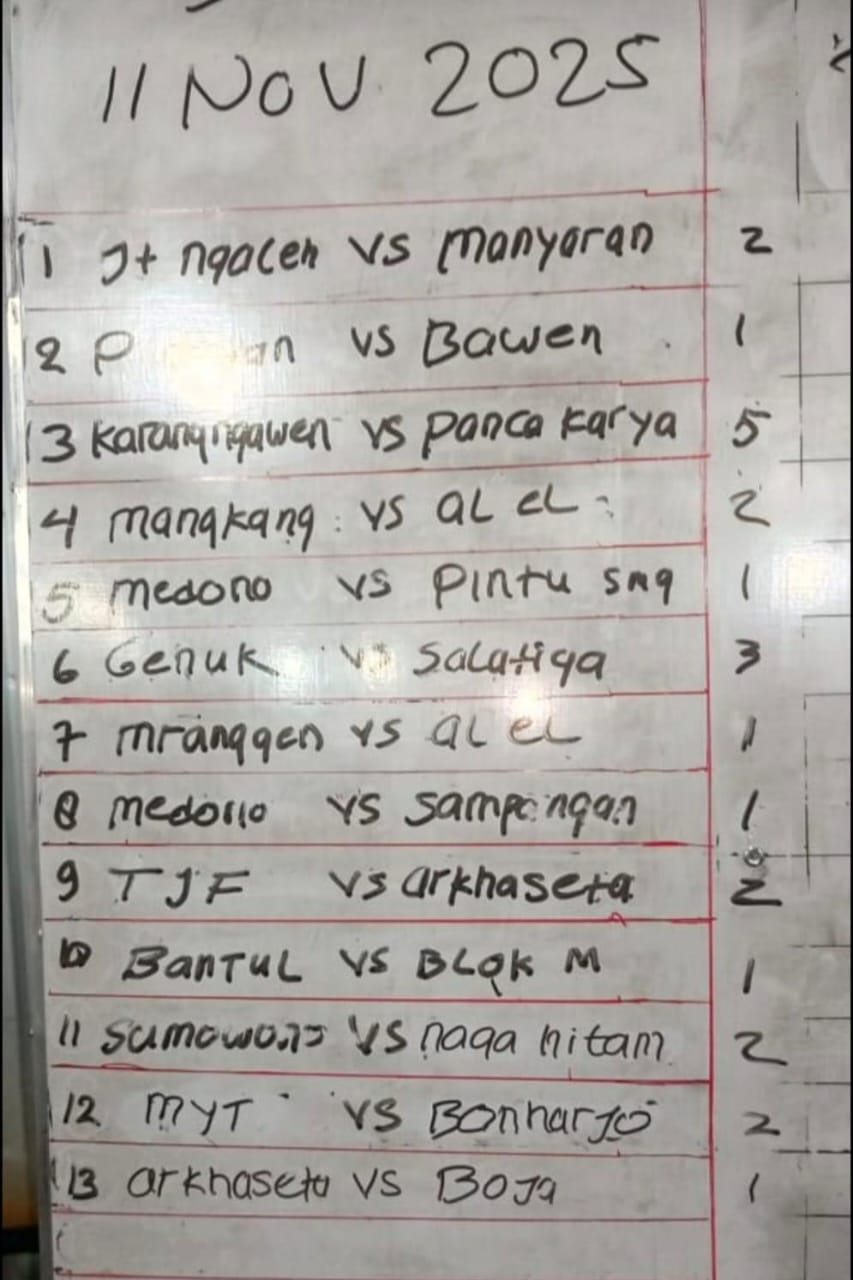 11 NOV. 2025
1 Jt ngaceh vs manyaran 2
2 vs Bawen 1
3 Karangngawen vs panca karya 5
4 mangkang vs aL eL 2
5 medono vs Pintu smg 1
6 Genuk vs Salatiga 3
7 mranggen vs aL eL 1
8 medono vs sampangan 1
9 TJF vs arkhaseta 2
10 BanTUL vs BLOK M 1
11 sumowono vs naga hitam 2
12 MYT vs Bonharjo 2
13 arkhaseta vs Boja 1